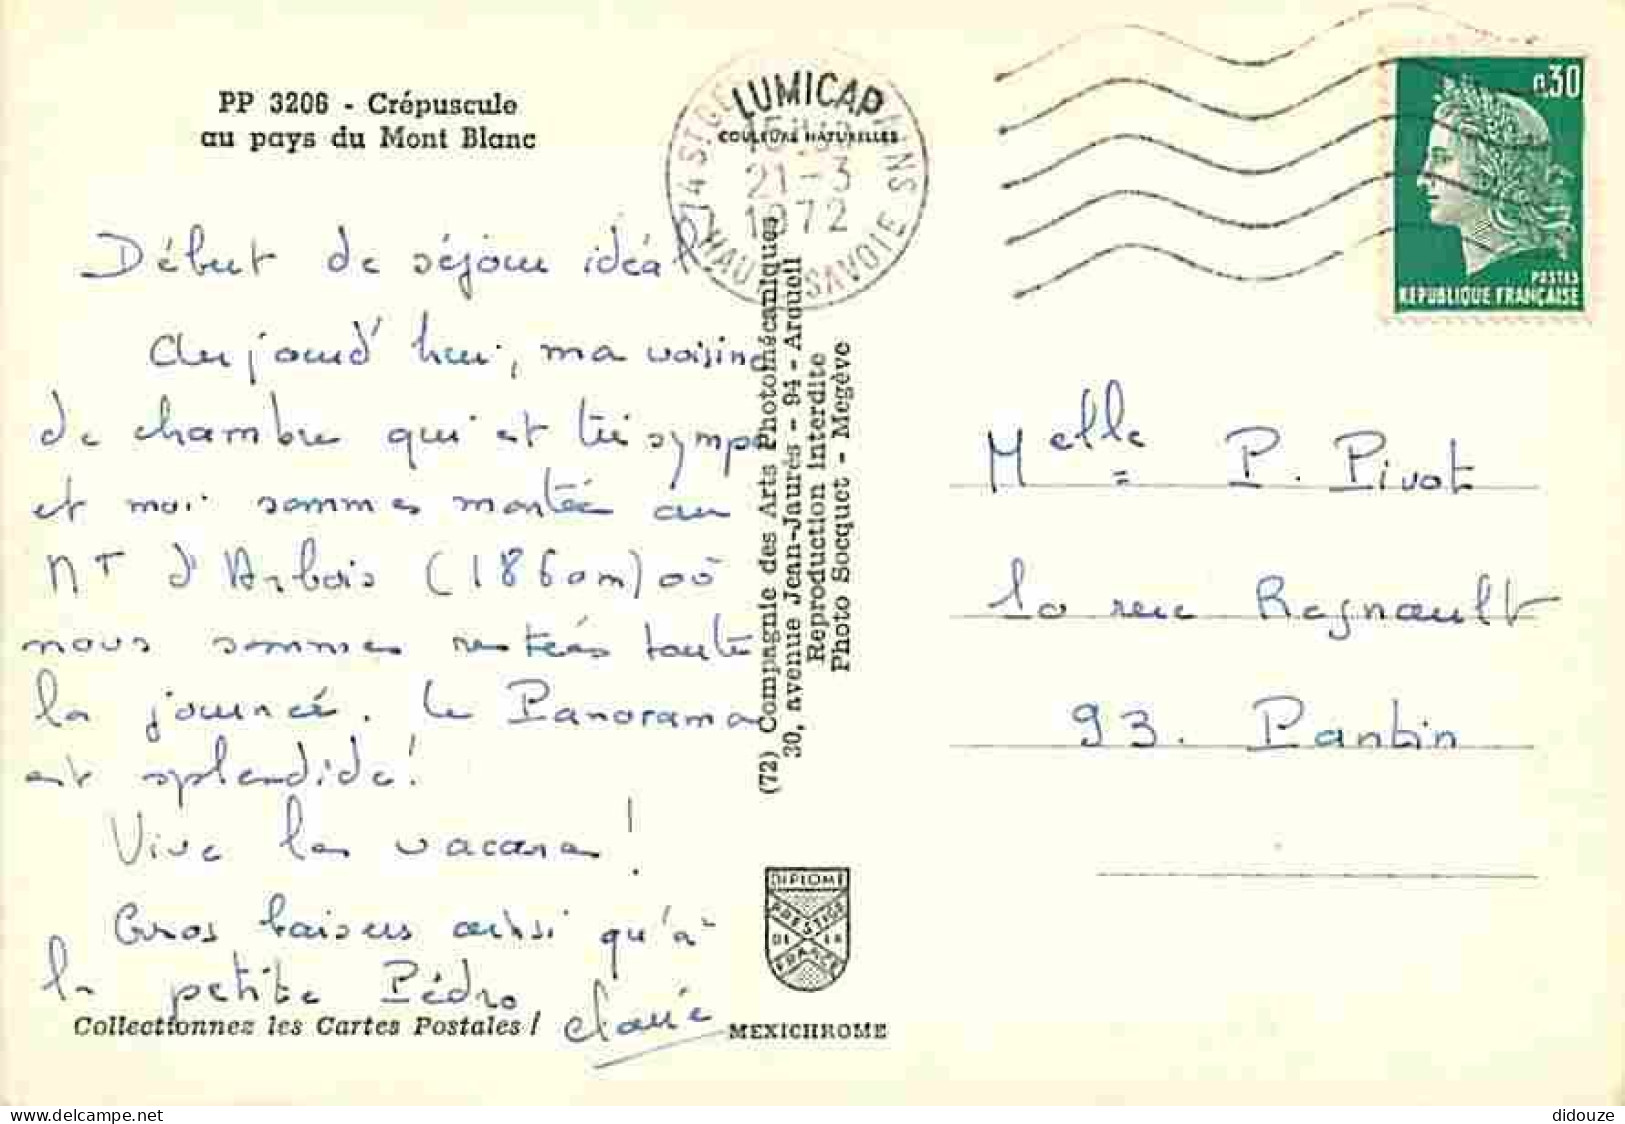 PP 3206 - Crépuscule
au pays du Mont Blanc
Début de séjour idéal
Aujourd'hui, ma voisine
de chambre qui est très sympa
et moi sommes montées au
Mt d'Arbois (1860m) où
nous sommes restées toute
la journée. Le Panorama
est splendide!
Vive les vacances!
Gros baisers ainsi qu'à
la petite Pédro
Collectionnez les Cartes Postales !
LUMICAP
COULEURS NATURELLES
21-3
1972
SAVOIE
(72) Compagnie des Arts Photomécaniques
30, avenue Jean-Jaurès - 94 - Arcueil
Reproduction interdite
Photo Socquet - Megève
DIPLOME
PRESTIGE
DE LA
FRANCE
MEXICHROME
0,30
POSTES
REPUBLIQUE FRANÇAISE
Melle P. Pivot
10 rue Regnault
93. Pantin
didouze
https://www.delcampe.net